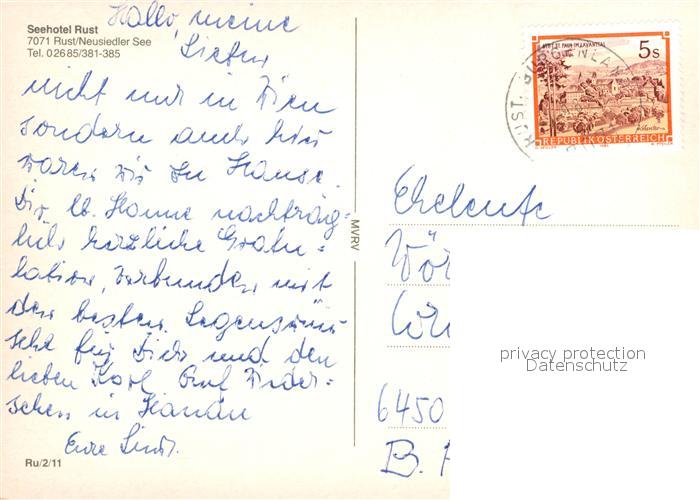 Hallo, meine
Lieben,
Seehotel Rust
7071 Rust/Neusiedler See
Tel. 02685/381-385
nicht nur in Wien
sondern auch hier
waren wir zu Hause.
Dir, lb. Hanne nachträg-
lich herzliche Gratu-
lation, verbunden mit
den besten Segenswün
sche für Dich und den
lieben Karl. Auf Wieder-
sehen in Hanau
Eure
Ru/2/11
MVRV
STIFT ST. PAUL IM LAVANTTAL
5s
REPUBLIK ÖSTERREICH
RUST, BURGENLAND
Eheleute
Wör
6450
B.
privacy protection
Datenschutz